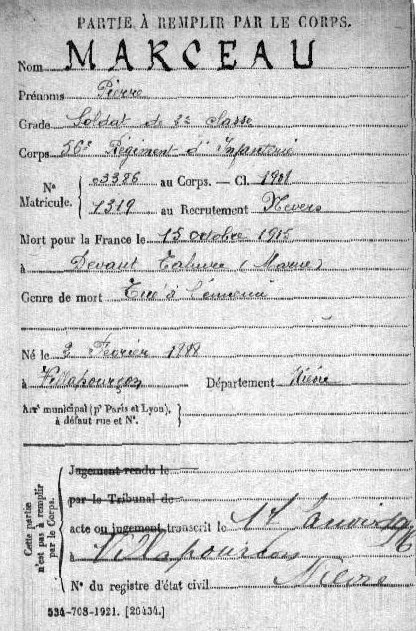 PARTIE À REMPLIR PAR LE CORPS.
Nom MARCEAU
Prénoms Pierre
Grade Soldat de 2e classe
Corps 56e Régiment d'Infanterie
N° Matricule. { 03386 au Corps. — Cl. 1901
1319 au Recrutement Nevers
Mort pour la France le 15 octobre 1915
à Devant Tahure (Marne)
Genre de mort Tué à l'ennemi
Né le 2 Février
à Villapourçon Département Nièvre
Arrt municipal (pr Paris et Lyon), à défaut rue et N°. }
Cette partie n'est pas à remplir par le Corps. {
Jugement rendu le
par le Tribunal de
acte ou jugement transcrit le 17 Janvier
à Villapourçon
N° du registre d'état civil Nièvre
534-708-1921. [26434.]